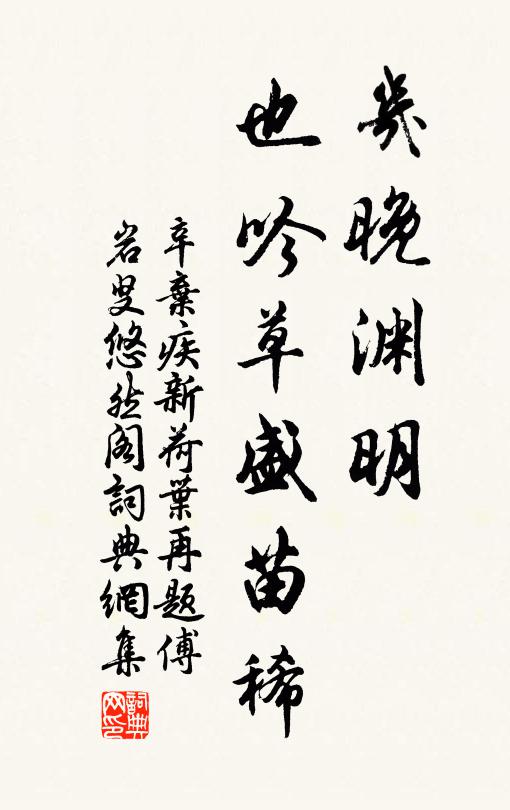 歲晚渊明
也吟草盛苗稀
辛棄疾新荷葉再题傅
岩叟悠然阁詞典網集
詞典
网印